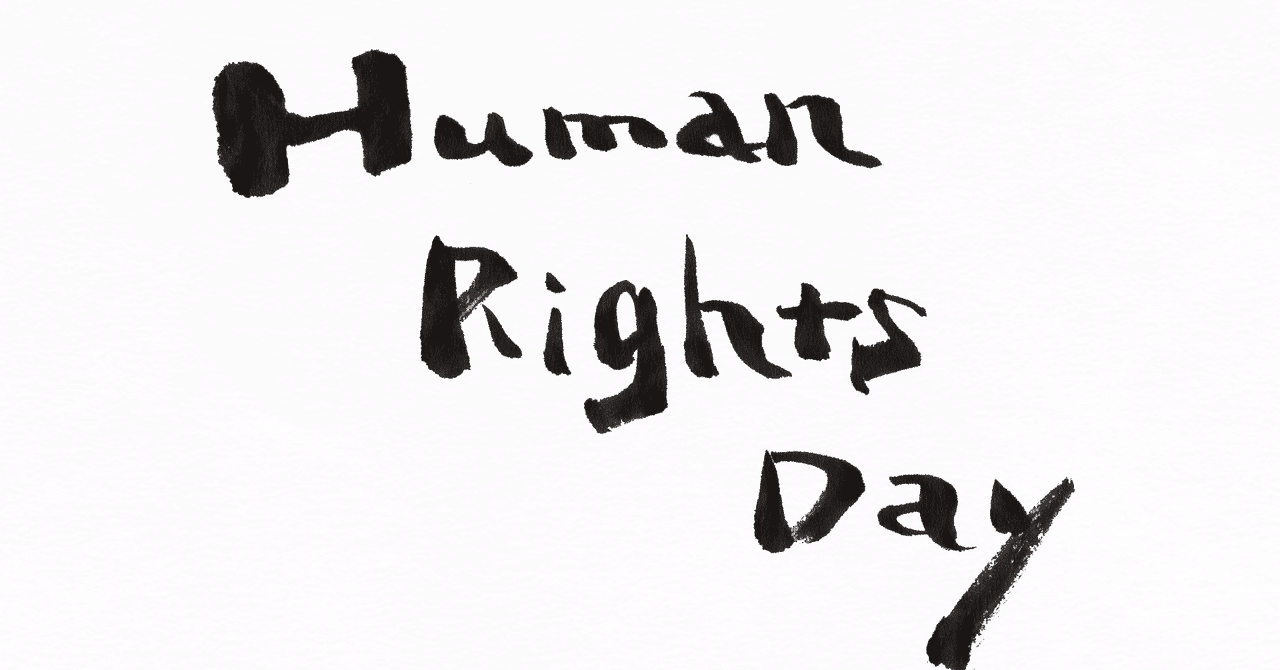 Human
Rights
Day